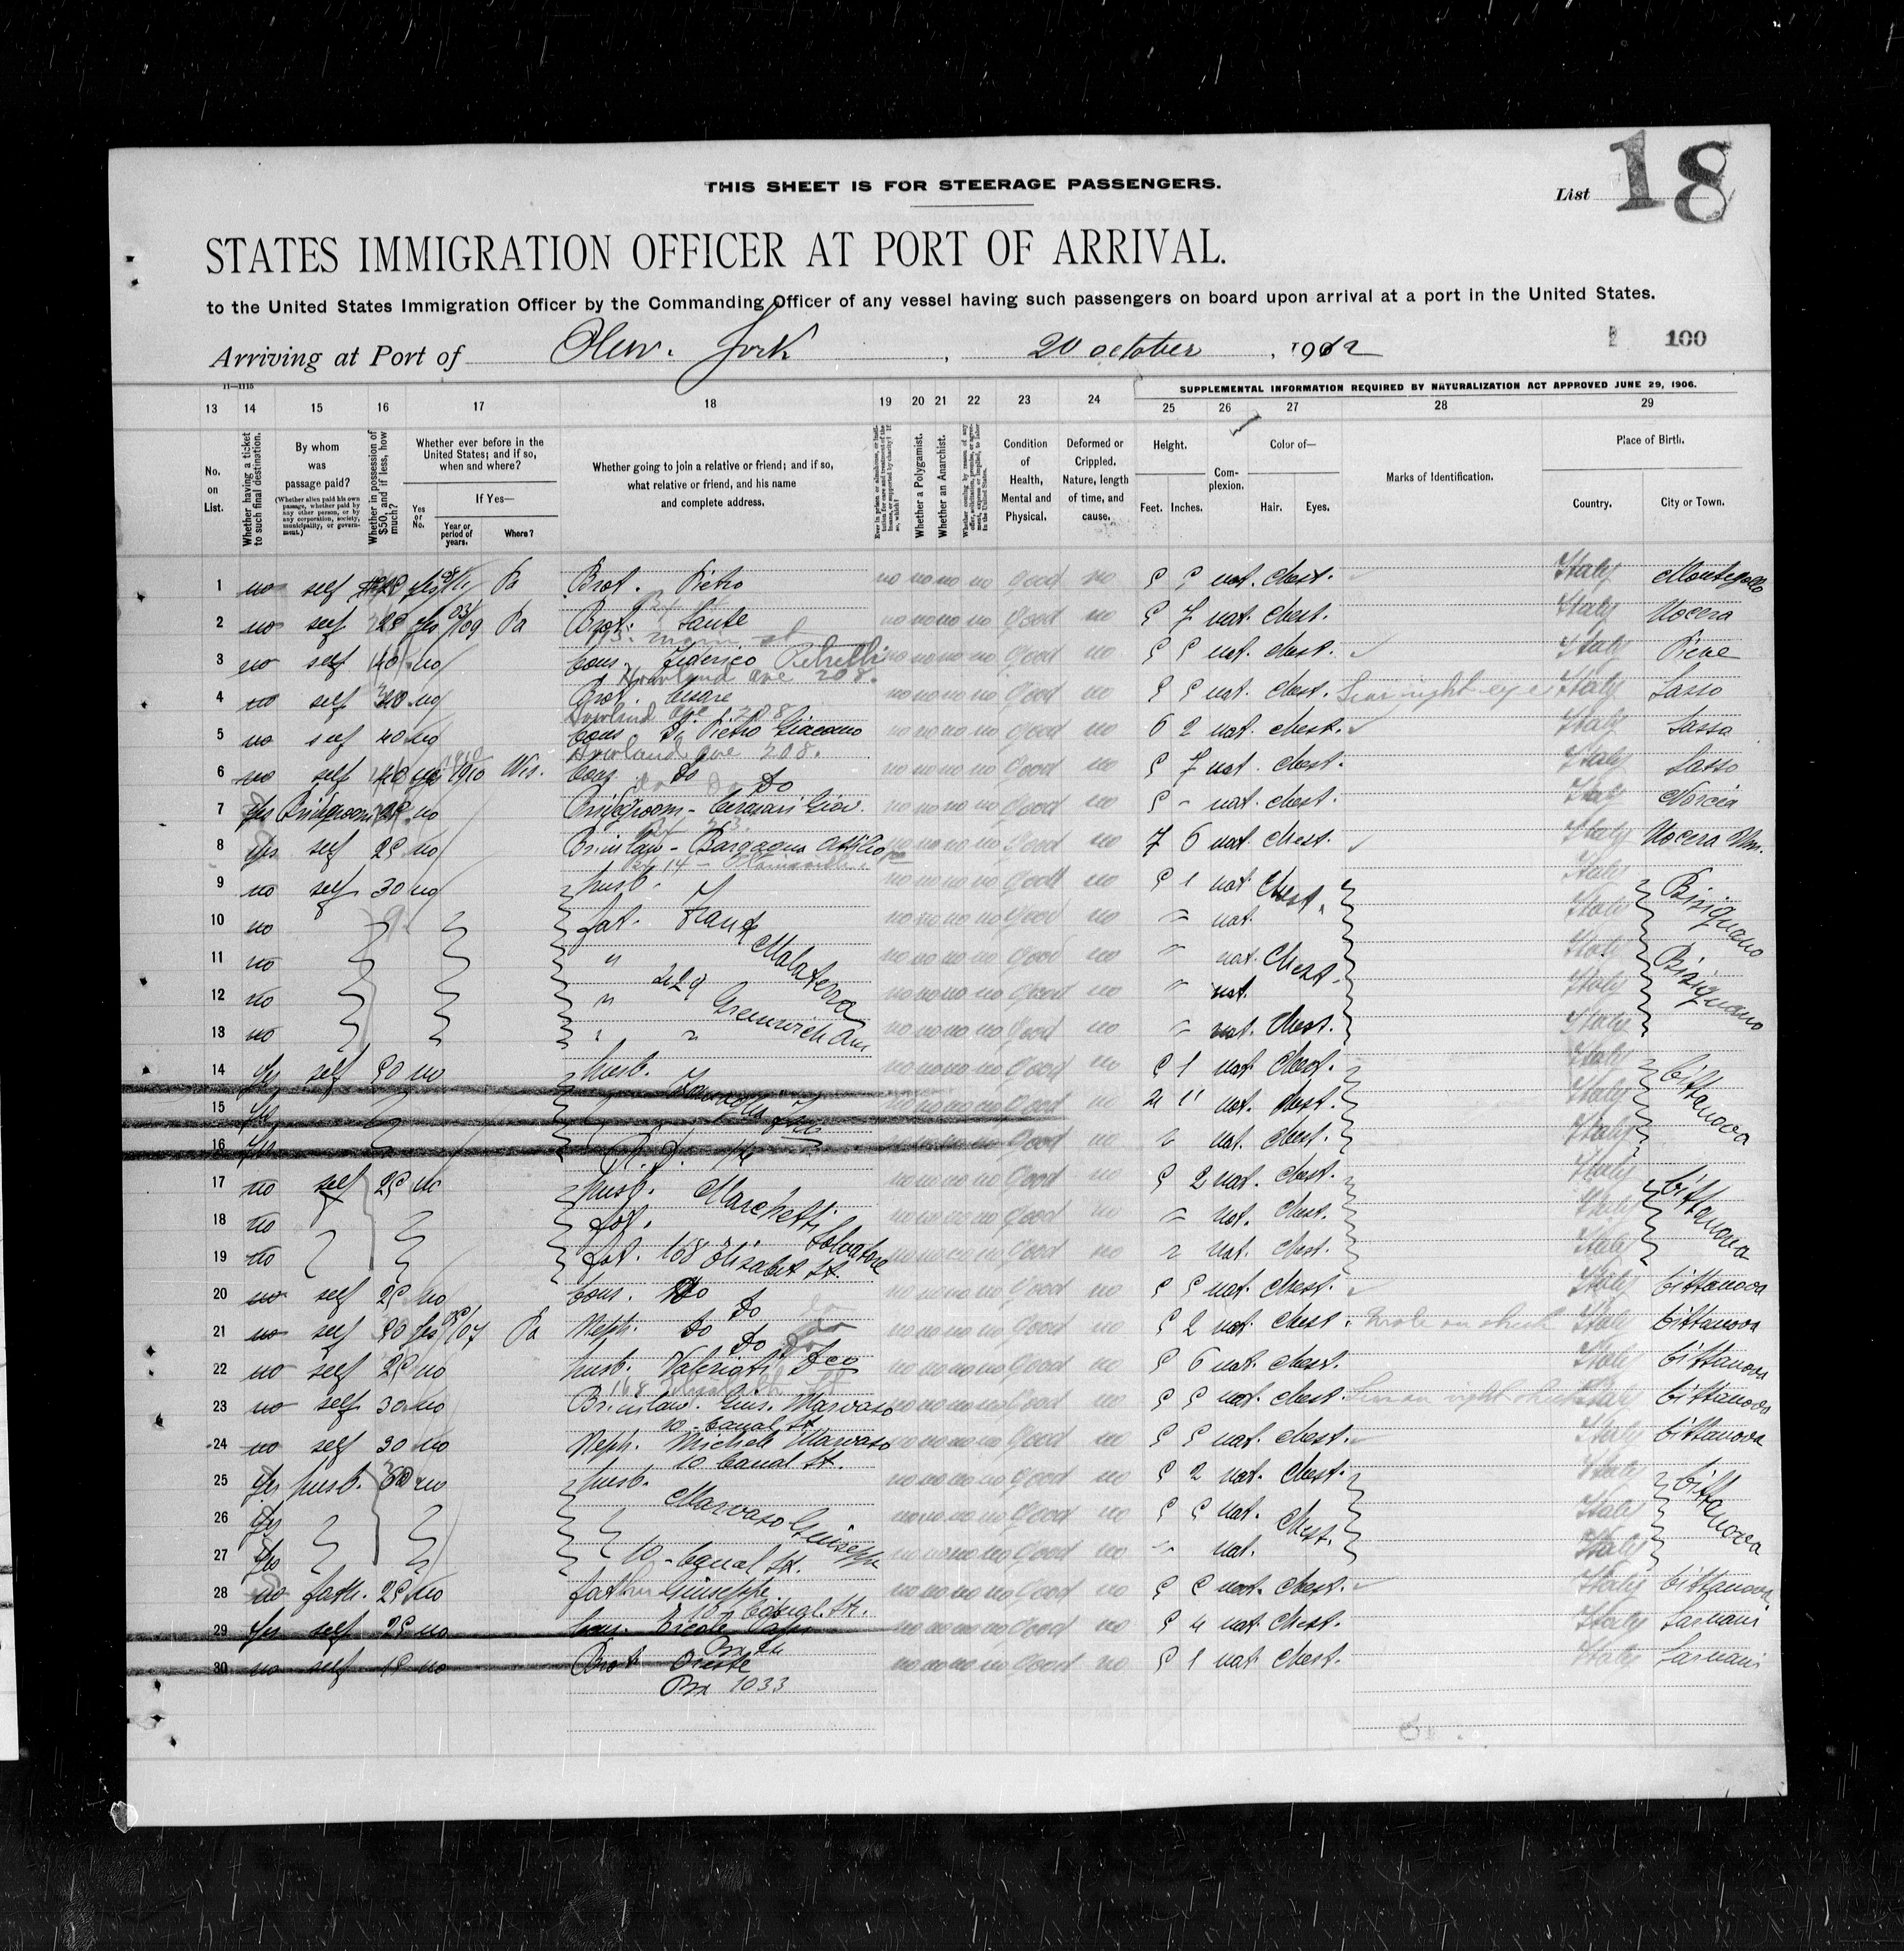 THIS SHEET IS FOR STEERAGE PASSENGERS.
List 18
STATES IMMIGRATION OFFICER AT PORT OF ARRIVAL.
to the United States Immigration Officer by the Commanding Officer of any vessel having such passengers on board upon arrival at a port in the United States.
Arriving at Port of New. York, 20 october, 1912
100
11—1115
SUPPLEMENTAL INFORMATION REQUIRED BY NATURALIZATION ACT APPROVED JUNE 29, 1906.
13 14 15 16 17 18 19 20 21 22 23 24 25 26 27 28 29
No. on List.
Whether having a ticket to such final destination.
By whom was passage paid?
(Whether alien paid his own passage, whether paid by any other person, or by any corporation, society, municipality, or government.)
Whether in possession of $50, and if less, how much?
Whether ever before in the United States; and if so, when and where?
If Yes—
Yes or No.
Year or period of years.
Where?
Whether going to join a relative or friend; and if so, what relative or friend, and his name and complete address.
Whether a Polygamist.
Whether an Anarchist.
Condition of Health, Mental and Physical.
Deformed or Crippled. Nature, length of time, and cause.
Height.
Feet. Inches.
Complexion.
Color of—
Hair. Eyes.
Marks of Identification.
Place of Birth.
Country. City or Town.
1 no self yes Pa Brot. Pietro no no no no Good no 5 5 nat. chest. Italy
2 no self 25 yes 09 Pa Brot. Sante no no no no Good no 5 7 nat. chest. Italy Nocera
3 no self 40 no Cous. Federico no no no no Good no 5 5 nat. chest. Italy Pieve
Howland ave 208.
4 no self no Brot. Cesare no no no no Good no 5 5 nat. chest. Scar right eye Italy Sasso
Howland ave 208
5 no self 40 no Cous Di Pietro Giacomo no no no no Good no 6 2 nat. chest. Italy Sasso
Howland ave 208.
6 no self 40 yes 1910 Wis. Cous. Do no no no no Good no 5 7 nat. chest. Italy Sasso
Do
7 yes Bridgroom no Bridgroom - Giov. no no no no Good no 5 - nat. chest. Italy Norcia
8 yes self 25 no Br in law - Attilio no no no no Good no 7 6 nat. chest. Italy Nocera Um.
9 no self 30 no husb. no no no no Good no 5 1 nat. Chest. Italy Bisignano
10 no fat. Frank no no no no Good no nat. Italy
11 no " Malaterra no no no no Good no nat. Chest. Italy Bisignano
12 no " 229 Greenwich Av. no no no no Good no nat. Italy
13 no " " no no no no Good no nat. Chest. Italy
14 yes self 50 no husb. no no no no Good no 5 1 nat. chest. Italy Cittanova
15 yes no no no no Good no 2 11 nat. chest. Italy
16 yes no no no no Good no nat. chest. Italy
17 no self 25 no husb. Marchetti Salvatore no no no no Good no 5 2 nat. chest. Italy Cittanova
18 no fat. no no no no Good no nat. chest. Italy
19 no fat. 168 Elisabet St. no no no no Good no nat. chest. Italy
20 no self 25 no Cous. Do no no no no Good no 5 5 nat. chest. Italy Cittanova
Do
21 no self 50 yes 07 Pa Neph. Do no no no no Good no 5 2 nat. chest. mole on cheek Italy Cittanova
Do
22 no self 25 no husb. no no no no Good no 5 6 nat. chest. Italy Cittanova
168 Elisabeth St
23 no self 30 no Br. in law. Gius. Marvaso no no no no Good no 5 5 nat. chest. Italy Cittanova
10 - Canal St.
24 no self 30 no Neph. Michele Marvaso no no no no Good no 5 5 nat. chest. Italy Cittanova
10 Canal St.
25 yes husb. no husb. no no no no Good no 5 2 nat. chest. Italy Cittanova
26 yes Marvaso Giuseppe no no no no Good no 5 5 nat. Chest. Italy
27 yes 10 - Canal St. no no no no Good no nat. Italy
28 no fath. 25 no father Giuseppe no no no no Good no 5 5 nat. chest. Italy Cittanova
10 Canal. St.
29 yes self 25 no Cous. Ercole no no no no Good no 5 4 nat. chest. Italy Sarnani
30 no self 15 no Brot. Oreste no no no no Good no 5 1 nat. chest. Italy Sarnani
Bx 1033